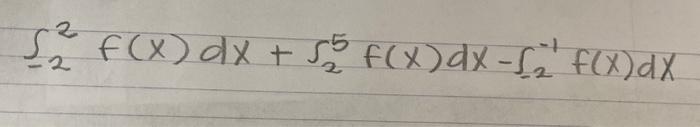 ∫_{-2}^{2} f(x) dx + ∫_{2}^{5} f(x) dx - ∫_{-2}^{-1} f(x) dx